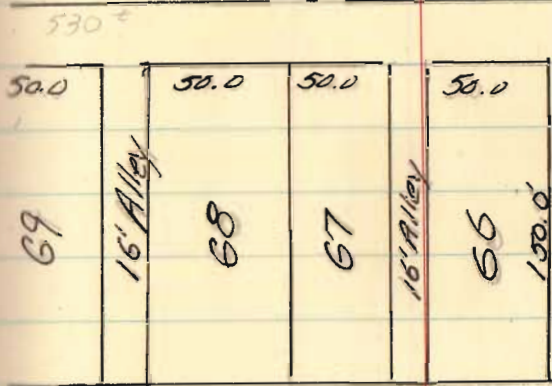 530 ±
50.0 50.0 50.0 50.0
69 16' Alley 68 67 16' Alley 66 150.0'